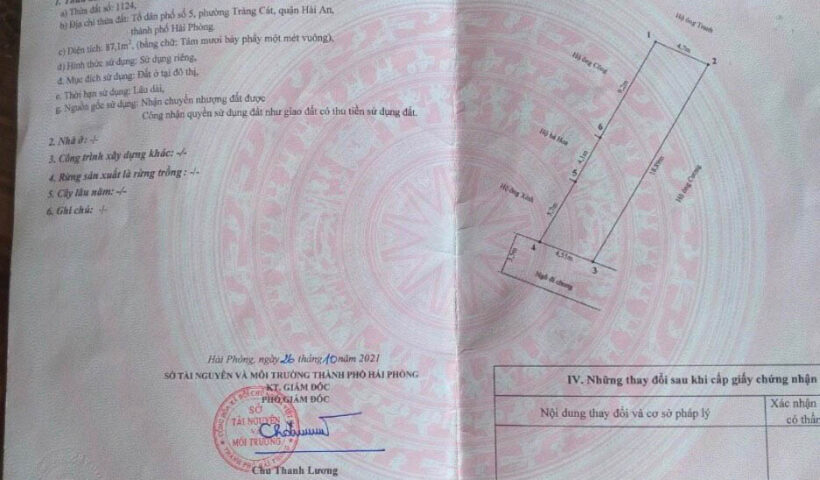 a) Thửa đất số: 1124,
b) Địa chỉ thửa đất: Tổ dân phố số 5, phường Tràng Cát, quận Hải An,
thành phố Hải Phòng,
c) Diện tích: 87,1m², (bằng chữ: Tám mươi bảy phẩy một mét vuông),
d) Hình thức sử dụng: Sử dụng riêng,
đ. Mục đích sử dụng: Đất ở tại đô thị,
e. Thời hạn sử dụng: Lâu dài,
g. Nguồn gốc sử dụng: Nhận chuyển nhượng đất được
Công nhận quyền sử dụng đất như giao đất có thu tiền sử dụng đất.
2. Nhà ở: -/-
3. Công trình xây dựng khác: -/-
4. Rừng sản xuất là rừng trồng : -/-
5. Cây lâu năm: -/-
6. Ghi chú: -/-
Hải Phòng, ngày 26 tháng 10 năm 2021
SỞ TÀI NGUYÊN VÀ MÔI TRƯỜNG THÀNH PHỐ HẢI PHÒNG
KT. GIÁM ĐỐC
PHÓ GIÁM ĐỐC
SỞ
TÀI NGUYÊN
VÀ
MÔI TRƯỜNG
THÀNH PHỐ HẢI PHÒNG
Chu Thanh Lương
Hộ ông
1
4,7m
2
Hộ ông Công
9,2m
6
Hộ bà Hoa
4,1m
5
18,89m
Hộ ông Cương
Hộ ông Xinh
5,7m
4
4,55m
3
3,5m
Ngõ đi chung
IV. Những thay đổi sau khi cấp giấy chứng nhận
Nội dung thay đổi và cơ sở pháp lý
Xác nhận
có thẩm